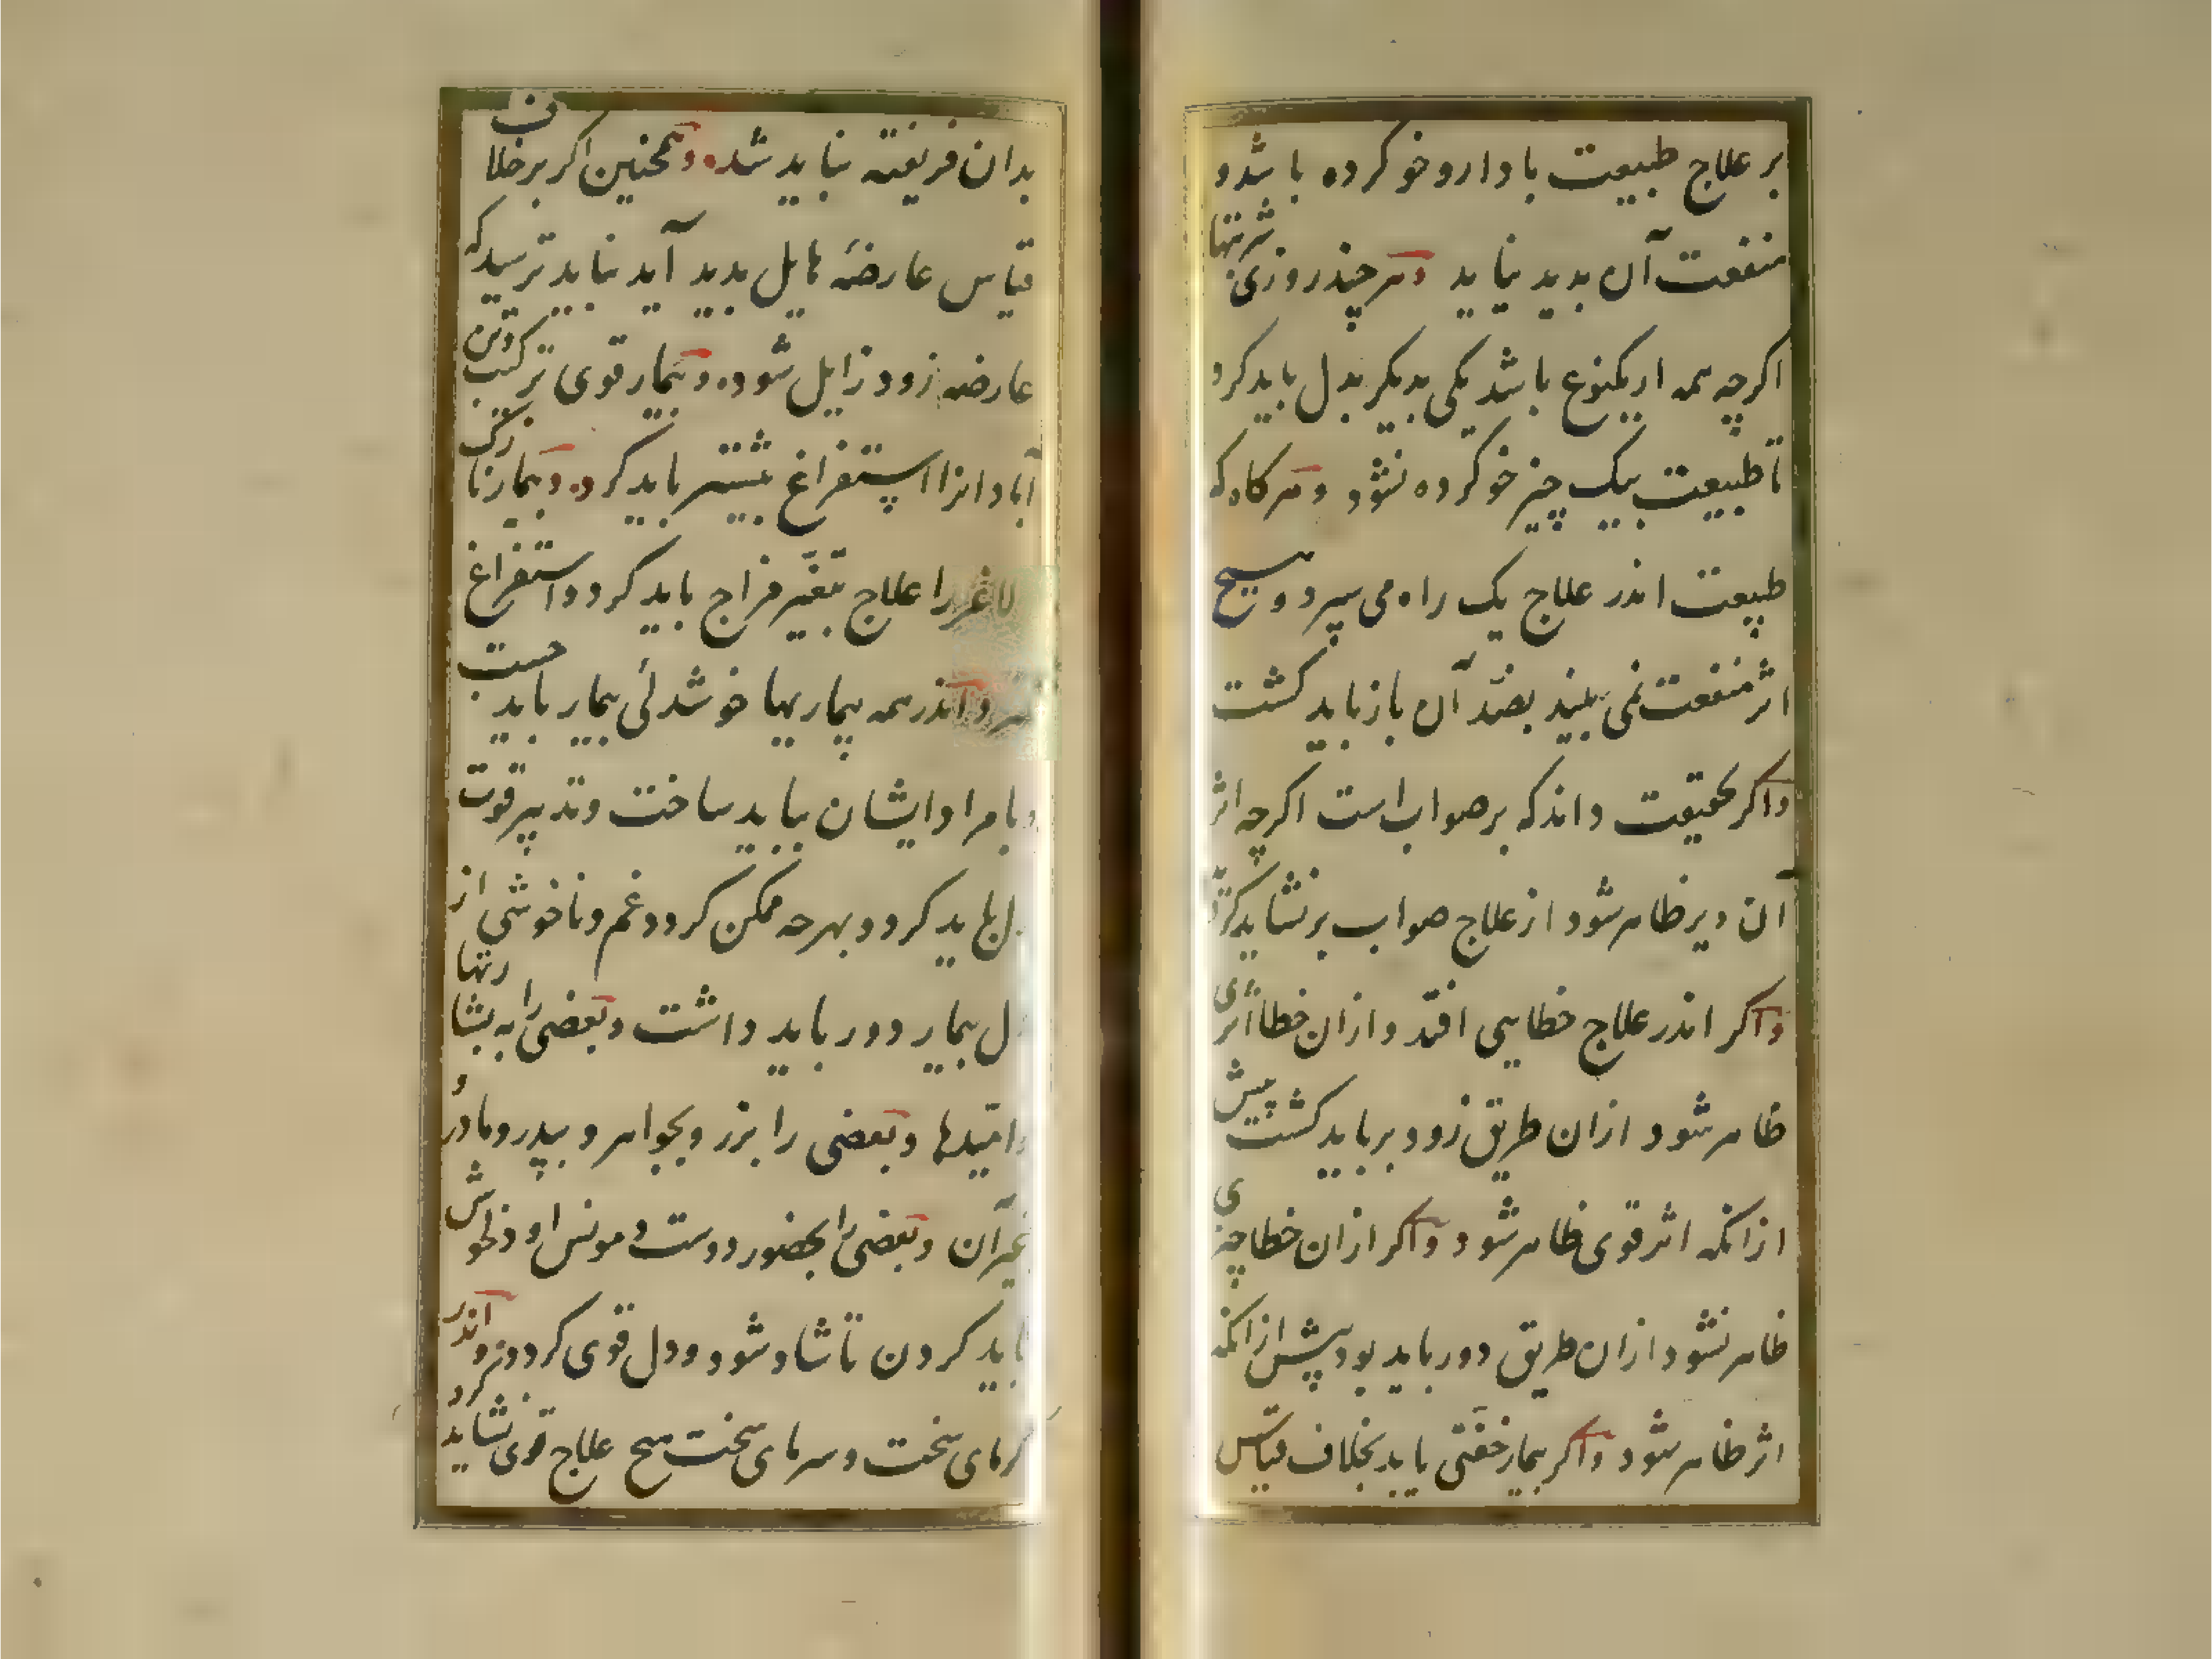 بر علاج طبیعت با دارو خو کرده باشد و
منفعت آن بدید نیاید و هر چند روزی شربتها
اکرچه همه از یکنوع باشد یکی بدیکر بدل باید کرد
تا طبیعت بیک چیز خو کرده نشود و هرکاه که
طبیعت اندر علاج یک راه می سپرد و هیچ
اثر منفعت نمی بیند بضد آن باز باید کشت
و اکر بحقیقت داند که بر صواب است اکرچه اثر
آن دیر ظاهر شود از علاج صواب بر نشاید کردن
و اکر اندر علاج خطایی افتد و ازان خطا اثری
ظاهر شود ازان طریق زود بر باید کشت پیش
ازانکه اثر قوی ظاهر شود و اکر ازان خطا چیزی
ظاهر نشود ازان طریق دور باید بود پیش ازانکه
اثر ظاهر شود و اکر بیمار خفتی یابد بخلاف قیاس
بدان فریفته نباید شد و همچنین اکر بر خلاف
قیاس عارضهٔ هایل بدید آید نباید ترسید که
عارضه زود زایل شود و بیمار قوی ترکیب
آبادانرا استفراغ بیشتر باید کرد و بیمار نازک
لاغر را علاج بتغیر مزاج باید کرد و استفراغ
و اندر همه بیماریها خوشدلی بیمار باید جست
و بامراد ایشان بباید ساخت و تدبیر قوت
دل باید کرد و بهرچه ممکن کردد غم و ناخوشی از
دل بیمار دور باید داشت و بعضی را به بشارتها
و امیدها و بعضی را بزر و بجواهر و بپدر و مادر و
غیر آن و بعضی را بحضور دوست و مونس او دلخوش
باید کردن تا شاد شود و دل قوی کردد و اندر
کرمای سخت و سرمای سخت هیچ علاج قوی نشاید کرد